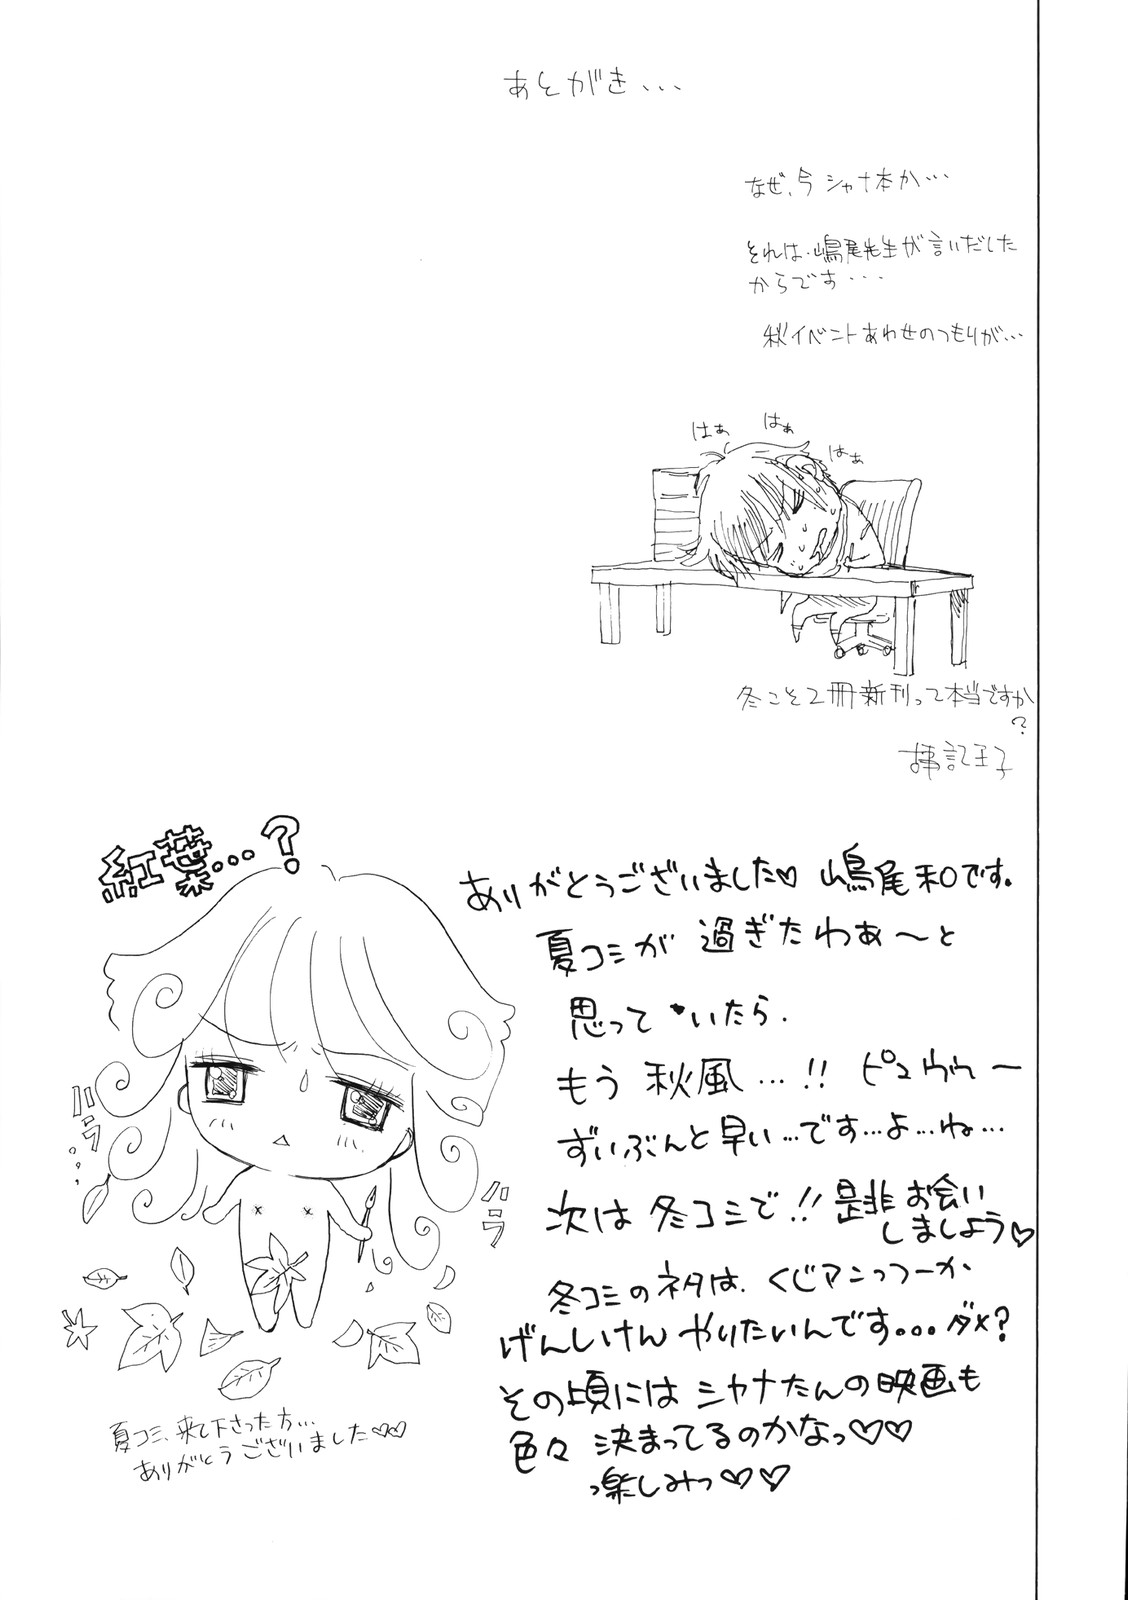 あとがき・・・
なぜ、今シャナ本か・・・
それは・嶋尾先生が言いだした
からです・・・
秋イベントあわせのつもりが…
はぁ
はぁ
はぁ
冬こそ2冊新刊って本当ですか
?
記王子
紅葉…?
ありがとうございました♡ 嶋尾和です。
夏コミが 過ぎたわぁ〜と
思って いたら.
もう 秋風…!! ピュウゥゥー
ずいぶんと早い…です…よ…ね…
次は 冬コミで!! 是非お会い
しましょう♡
冬コミのネタは. くじアンっつーか
げんしけん やりたいんです… ダメ?
その頃には シャナたんの映画も
色々 決まってるのかなっ♡♡
っ楽しみっ♡♡
ハラ…
ハラ
夏コミ、来て下さった方…
ありがとうございました♡♡